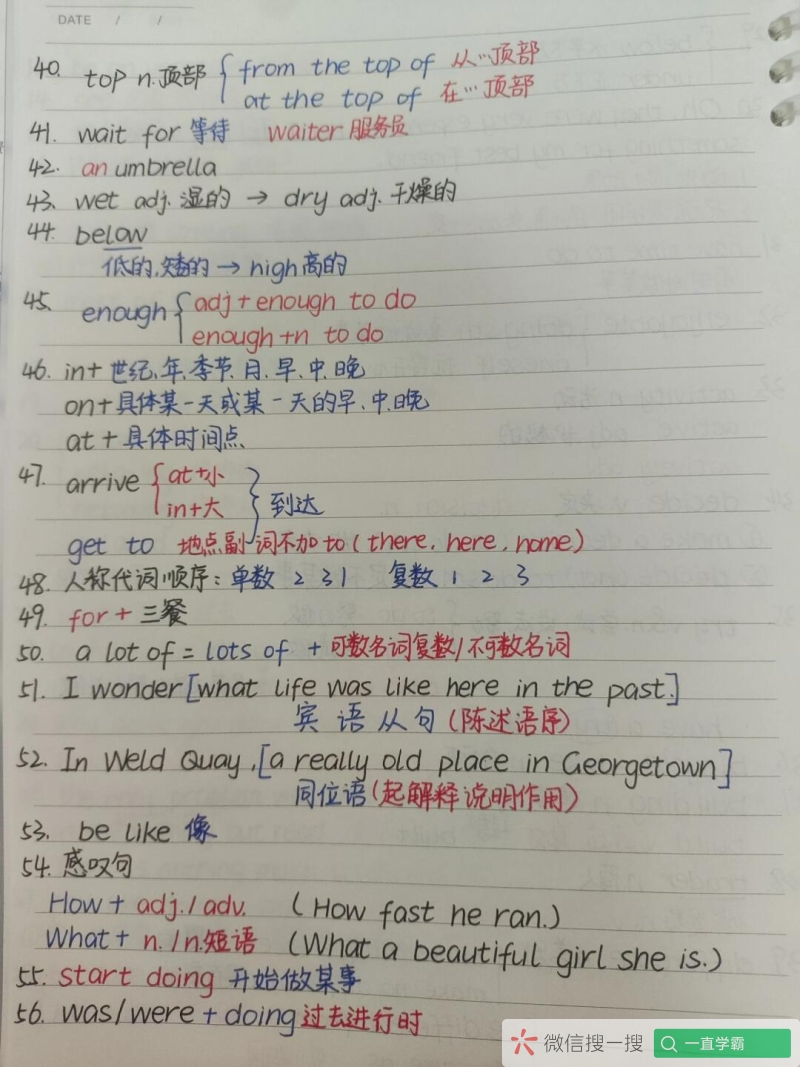 DATE / /
40. top n.顶部 { from the top of 从…顶部
at the top of 在…顶部
41. wait for 等待 waiter 服务员
42. an umbrella
43. wet adj. 湿的 → dry adj. 干燥的
44. below
低的,矮的 → high 高的
45. enough { adj + enough to do
enough + n to do
46. in + 世纪、年、季节、月、早、中、晚
on + 具体某一天或某一天的早、中、晚
at + 具体时间点
47. arrive { at + 小
in + 大 } 到达
get to 地点副词不加 to ( there, here, home )
48. 人称代词顺序: 单数 2 3 1 复数 1 2 3
49. for + 三餐
50. a lot of = lots of + 可数名词复数 / 不可数名词
51. I wonder [what life was like here in the past.]
宾语从句 (陈述语序)
52. In Weld Quay, [a really old place in Georgetown]
同位语 (起解释说明作用)
53. be like 像
54. 感叹句
How + adj. / adv. ( How fast he ran. )
What + n. / n.短语 (What a beautiful girl she is.)
55. start doing 开始做某事
56. was/were + doing 过去进行时
微信搜一搜 一直学霸